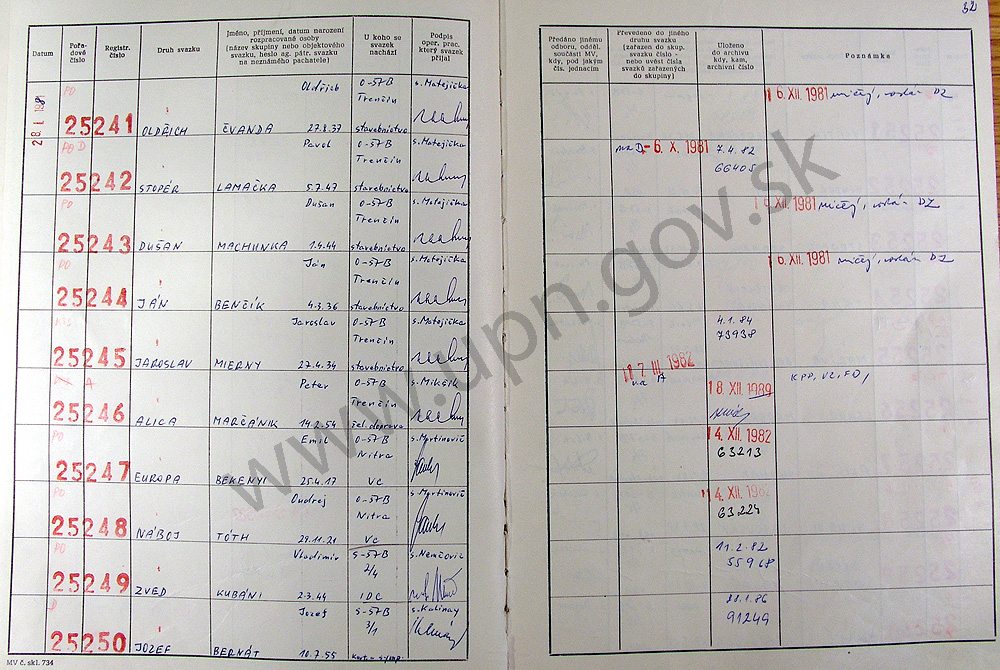 32
Datum
Pořadové číslo
Registr. číslo
Druh svazku
Jméno, příjmení, datum narození
rozpracované osoby
(název skupiny nebo objektového
svazku, heslo ag. pátr. svazku
na neznámého pachatele)
U koho se
svazek
nachází
Podpis
oper. prac.
který svazek
přijal
Předáno jinému
odboru, odděl.
součásti MV,
kdy, pod jakým
čís. jednacím
Převedeno do jiného
druhu svazku
(zařazen do skup.
svazku číslo -
nebo uvést čísla
svazků zařazených
do skupiny)
Uloženo
do archivu
kdy, kam,
archivní číslo
Poznámka
28. I. 1981
PO Oldřich 0-57B s. Matejička
Trenčín
25241 OLDŘICH ČVANDA 27.8.37 stavebnictvo
6. XII. 1981
PO D Pavol 0-57B s. Matejička
Trenčín
25242 STOPÉR LAMAČKA 5.7.47 stavebníctvo
na D - 6. X. 1981 7.4.82
66405
PO Dušan 0-57B s. Matejička
Trenčín
25243 DUŠAN MACHUNKA 1.4.44 stavebníctvo
6. XII. 1981
PO Ján 0-57B s. Matejička
Trenčín
25244 JÁN BENČÍK 4.3.36 stavebníctvo
6. XII. 1981
Jaroslav 0-57B s. Matejička
Trenčín
25245 JAROSLAV MIERNY 27.4.34 stavebníctvo
4.1.84
73938
A Peter 0-57B s. Mikšík
Trenčín
25246 ALICA MARČÁNIK 14.2.54 žel. doprava
17. III. 1982
na A
18. XII. 1989
PO Emil 0-57B s. Martinovič
Nitra
25247 EUROPA BEKÉNYI 25.4.17 VC
14. XII. 1982
63213
PO Ondrej 0-57B s. Martinovič
Nitra
25248 NÁBOJ TÓTH 29.11.21 VC
14. XII. 1982
63224
PO Vladimír S-57B s. Nemčovič
2/4
25249 ZVED KUBÁNI 2.3.44 IDC
11.2.82
55968
D Jozef S-57B s. Kalinay
3/1
25250 JOZEF BERNÁT 10.7.55
91249
MV č. skl. 734
www.upn.gov.sk